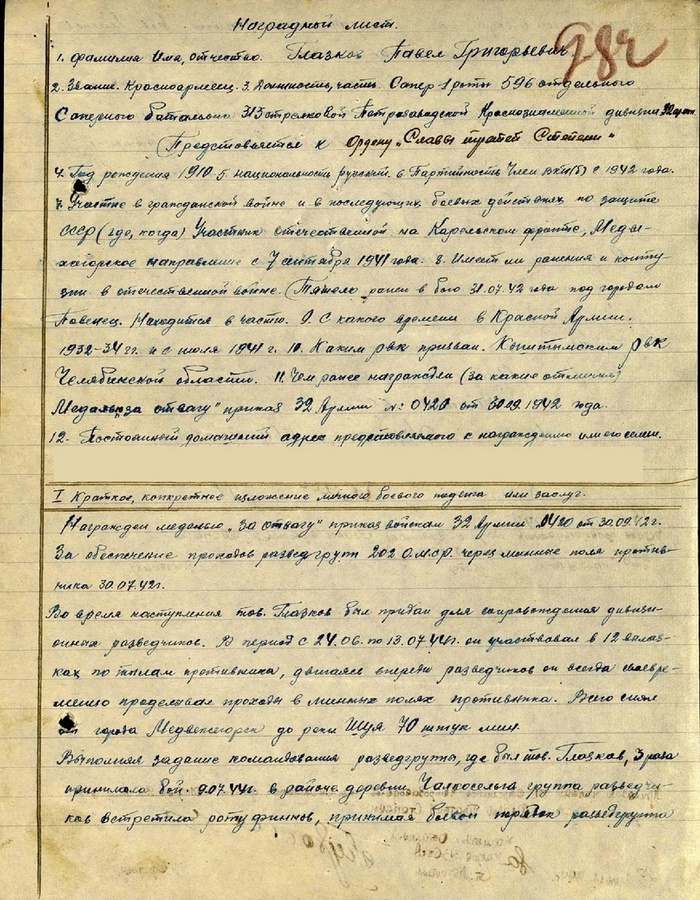 Наградной лист.
98г
1. Фамилия Имя, отчество. Глазков Павел Григорьевич
2. Звание. Красноармеец. 3. Должность, часть. Сапер 1 роты 596 отдельного
Саперного батальона 313 стрелковой Петрозаводской Краснознаменной дивизии 32 арм
Представляется к Ордену „Славы третей Степени"
4. Год рождения 1910 5. национальность русский. 6. Партийность Член ВКП(б) с 1942 года.
7. Участие в гражданской войне и в последующих боевых действиях по защите
СССР (где, когда) Участник отечественной на Карельском фронте, Медве-
жегорское направление с 7 сентября 1941 года. 8. Имеет ли ранения и конту-
зии в отечественной войне. (Тяжело ранен в бою 31.07.42 года под городом
Повенец. Находится в части. 9. С какого времени в Красной Армии.
1932-34 гг. и с июля 1941 г. 10. Каким рвк призван. Кыштымским РВК
Челябинской области. 11. Чем ранее награжден (за какие отличия)
Медалью „за отвагу" приказ 32 Армии №: 0420 от 30.09.1942 года.
12. Постоянный домашний адрес представляемого к награждению или его семьи.
I Краткое, конкретное изложение личного боевого подвига или заслуг.
Награжден медалью „За отвагу" приказ войскам 32 Армии 0420 от 30.09.42 г.
За обеспечение проходов разведгрупп 202 О.М.СР. через минные поля против-
ника 30.07.42 г.
Во время наступления тов. Глазков был придан для сопровождения дивизи-
онных разведчиков. В период с 24.06. по 13.07.44 г. он участвовал в 12 вылаз-
ках по тылам противника, двигаясь впереди разведчиков он всегда своевре-
менно проделывал проходы в минных полях противника. Всего снял
от города Медвежегорск до реки Шуя 70 штук мин.
Выполняя задание командования разведгруппы, где был тов. Глазков, 3 раза
принимала бой 9.07.44 г. в районе деревни Чалкосельга группа разведчи-
ков встретила роту финнов, принимая боевой порядок разведгруппа